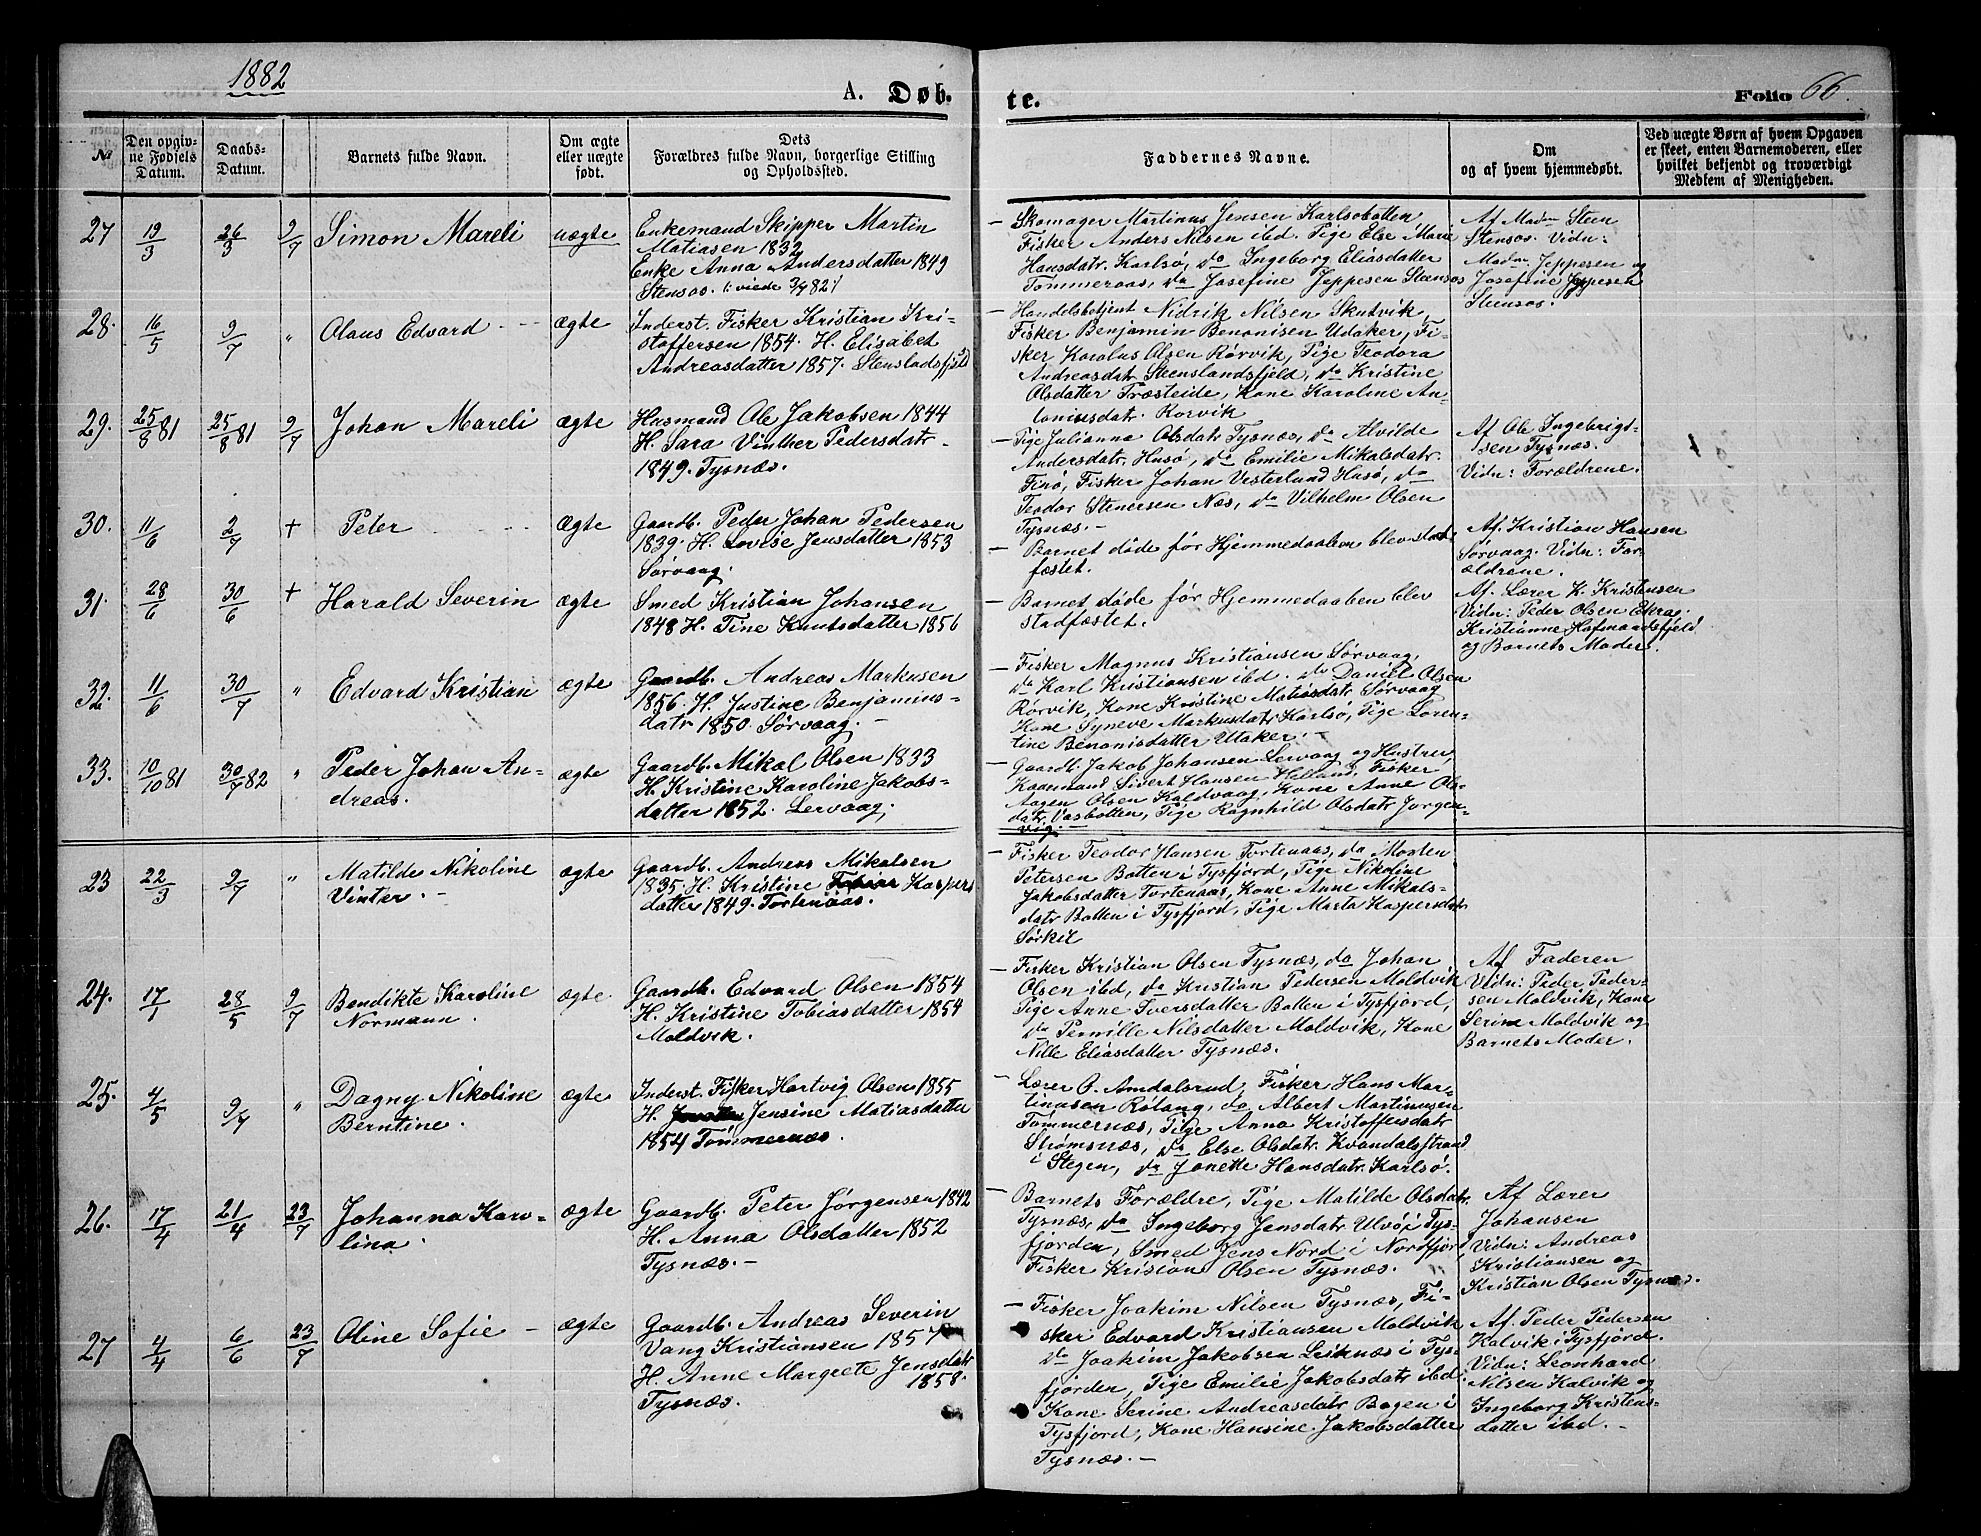 1882
A. Døb.
te.
Folio 66.
№
Den opgiv-
ne Fødsels
Datum.
Daabs-
Datum.
Barnets fulde Navn.
Om ægte
eller uægte
født.
Dets
Forældres fulde Navn, borgerlige Stilling
og Opholdssted.
Faddernes Navne.
Om
og af hvem hjemmedøbt.
Ved uægte Børn af hvem Opgaven
er skeet, enten Barnemoderen, eller
hvilket bekjendt og troværdigt
Medlem af Menigheden.
27 19/3 26/3 9/7 Simon Mareli uægte
Enkemand Skipper Martin
Matiasen 1832
Enke Anna Andersdatter 1849
Stensos. /: viede 3/9 82 /
— Skomager Martinus Jensen Karlsobotten
Fisker Anders Nilsen ibd. Pige Else Marie
Hansdatr. Karlsö, do Ingeborg Eliasdatter
Tömmeraas, do Josefine Jeppesen Stensos
Af Madm Steen
Stensos. Vidn:
Madm. Jeppesen og
Josefine Jeppesen
Stensos.
28. 16/5 9/7 " Olaus Edvard - - - ægte
Inderst. Fisker Kristian Kri-
stoffersen 1854. H. Elisabet
Andreasdatter 1857. Stenslandsfjeld
— Handelsbetjent Nidrik Nilsen Skutvik,
Fisker Benjamin Benonisen Udaker, Fi-
sker Karolus Olsen Rörvik, Pige Teodora
Andreasdatr Steenslandsfjeld, do Kristine
Olsdatter Træsteide, Kone Karoline An-
toniusdatr. Rorvik
29. 25/8 81 25/8 81 9/7 Johan Mareli ægte
Husmand Ole Jakobsen 1844
H. Sara Vinther Pedersdatr.
1849. Tysnæs.
— Pige Julianna Olsdatr Tysnæs, do Alvilde
Andersdatr. Husö, do Emilie Mikalsdatr.
Finö, Fisker Johan Vesterlund Husö, do
Teodor Stenersen Næs, do Vilhelm Olsen
Tysnæs. —
Af Ole Ingebrigt-
sen Tysnæs.
Vidn: Forældrene.
30. 11/6 2/7 + Peter - - - ægte
Gaardb. Peder Johan Pedersen
1839. H. Lovise Jensdatter 1853
Sörvaag.
— Barnet döde för Hjemmedaaben blev stad-
fæstet.
Af. Kristian Hansen
Sörvaag. Vidn: For-
ældrene.
31. 28/6 30/6 + Harald Severin ægte
Smed Kristian Johansen
1848 H. Tine Knutsdatter 1856
— Barnet döde för Hjemmedaaben blev
stadfæstet.
Af. Lærer K. Kristensen
Vidn: Peder Olsen Ekrag.
Kristianne Hafmandsfjeld
og Barnets Moder.
32. 11/6 30/7 " Edvard Kristian ægte
Gaardb. Andreas Markusen
1856. H. Justine Benjamins-
datr 1850. Sörvaag. —
— Fisker Magnus Kristiansen Sörvaag,
do Karl Kristiansen ibd. do Daniel Olsen
Rörvik, Kone Kristine Matiasdatr Sörvaag
Kone Syneve Markusdatr Karlsö, Pige Loren-
tine Benonisdatter Utaker. —
33. 10/10 81 30/7 82 " Peder Johan An-
dreas. ægte
Gaardb. Mikal Olsen 1833
H. Kristine Karoline Jakobs-
datter 1852. Lervaag.
— Gaardb. Jakob Johansen Lervaag og Hustru,
Kaarmand Sivert Hansen Helland, Fisker
Aagen Olsen Kaldvaag, Kone Anne Ols-
datr. Vasbotten, Pige Ragnhild Olsdatr Jorgen-
vig. —
23 22/3 9/7 " Matilde Nikoline
Vinter. — ægte
Gaardb. Andreas Mikalsen
1835. H. Kristine Kaspers
datter 1849. Tortenaas.
— Fisker Teodor Hansen Tortenaas, do Morten
Petersen Botten i Tysfjord, Pige Nikoline
Jakobsdatter Tortenaas, Kone Anne Mikals-
datr Botten i Tysfjord, Pige Marta Kaspersdatr
Sörkil
24. 17/1 28/5 9/7 Bendikte Karoline
Normann. ægte
Gaardb. Edvard Olsen 1854
H. Kristine Tobiasdatter 1854
Moldvik.
— Fisker Kristian Olsen Tysnæs, do Johan
Olsen ibd, do Kristian Pedersen Moldvik
Pige Anne Iversdatter Botten i Tysfjord,
do Pernille Nilsdatter Moldvik, Kone
Nille Eliasdatter Tysnæs.
Af Faderen
Vidn: Peder Peder-
sen Moldvik, Kone
Serine Moldvik og
Barnets Moder.
25. 4/5 9/7 " Dagny Nikoline
Berntine. ægte
Inderst. Fisker Hartvig Olsen 1855
H. Jensine Matiasdatter
1854 Tömmernæs.
— Lærer O. Amdalsrud, Fisker Hans Mar-
tinusen Rötang, do Albert Martinusen
Tømmernæs, Pige Anna Kristoffersdatr
Strømsnæs, do Else Olsdatr. Kvandalsstrand
i Stegen, do Jonette Hansdatr. Karlsö.
26. 17/4 21/4 23/7 Johanna Karo-
lina. ægte
Gaardb. Peter Jörgensen 1842
H. Anna Olsdatter 1852
Tysnæs. —
— Barnets Forældre, Pige Matilde Olsdatr.
Tysnæs, do Ingeborg Jensdatr Ulvö i Tys-
fjorden, Smed Jens Nord i Nordfjord
Fisker Kristian Olsen Tysnæs.
Af Lærer
Johansen
Vidn: Andreas
Kristiansen og
Kristian Olsen Tysnæs.
27 4/4 6/6 23/7 Oline Sofie — ægte
Gaardb. Andreas Severin
Vang Kristiansen 1857
H. Anne Margrete Jensdatr
1858.
Tysnæs.
— Fisker Joakim Nilsen Tysnæs, Fi-
sker Edvard Kristiansen Moldvik
do Joakim Jakobsen Leiknæs i Tys-
fjorden, Pige Emilie Jakobsdatr ibd.
Kone Serine Andreasdatr Bogen i
Tysfjord, Kone Hansine Jakobsdatter
Tysnæs. —
Af. Peder Pedersen
Kalvik i Tysfjord.
Vidn: Leonhard
Nilsen Kalvik og
Ingeborg Kristens-
datter ibd. —